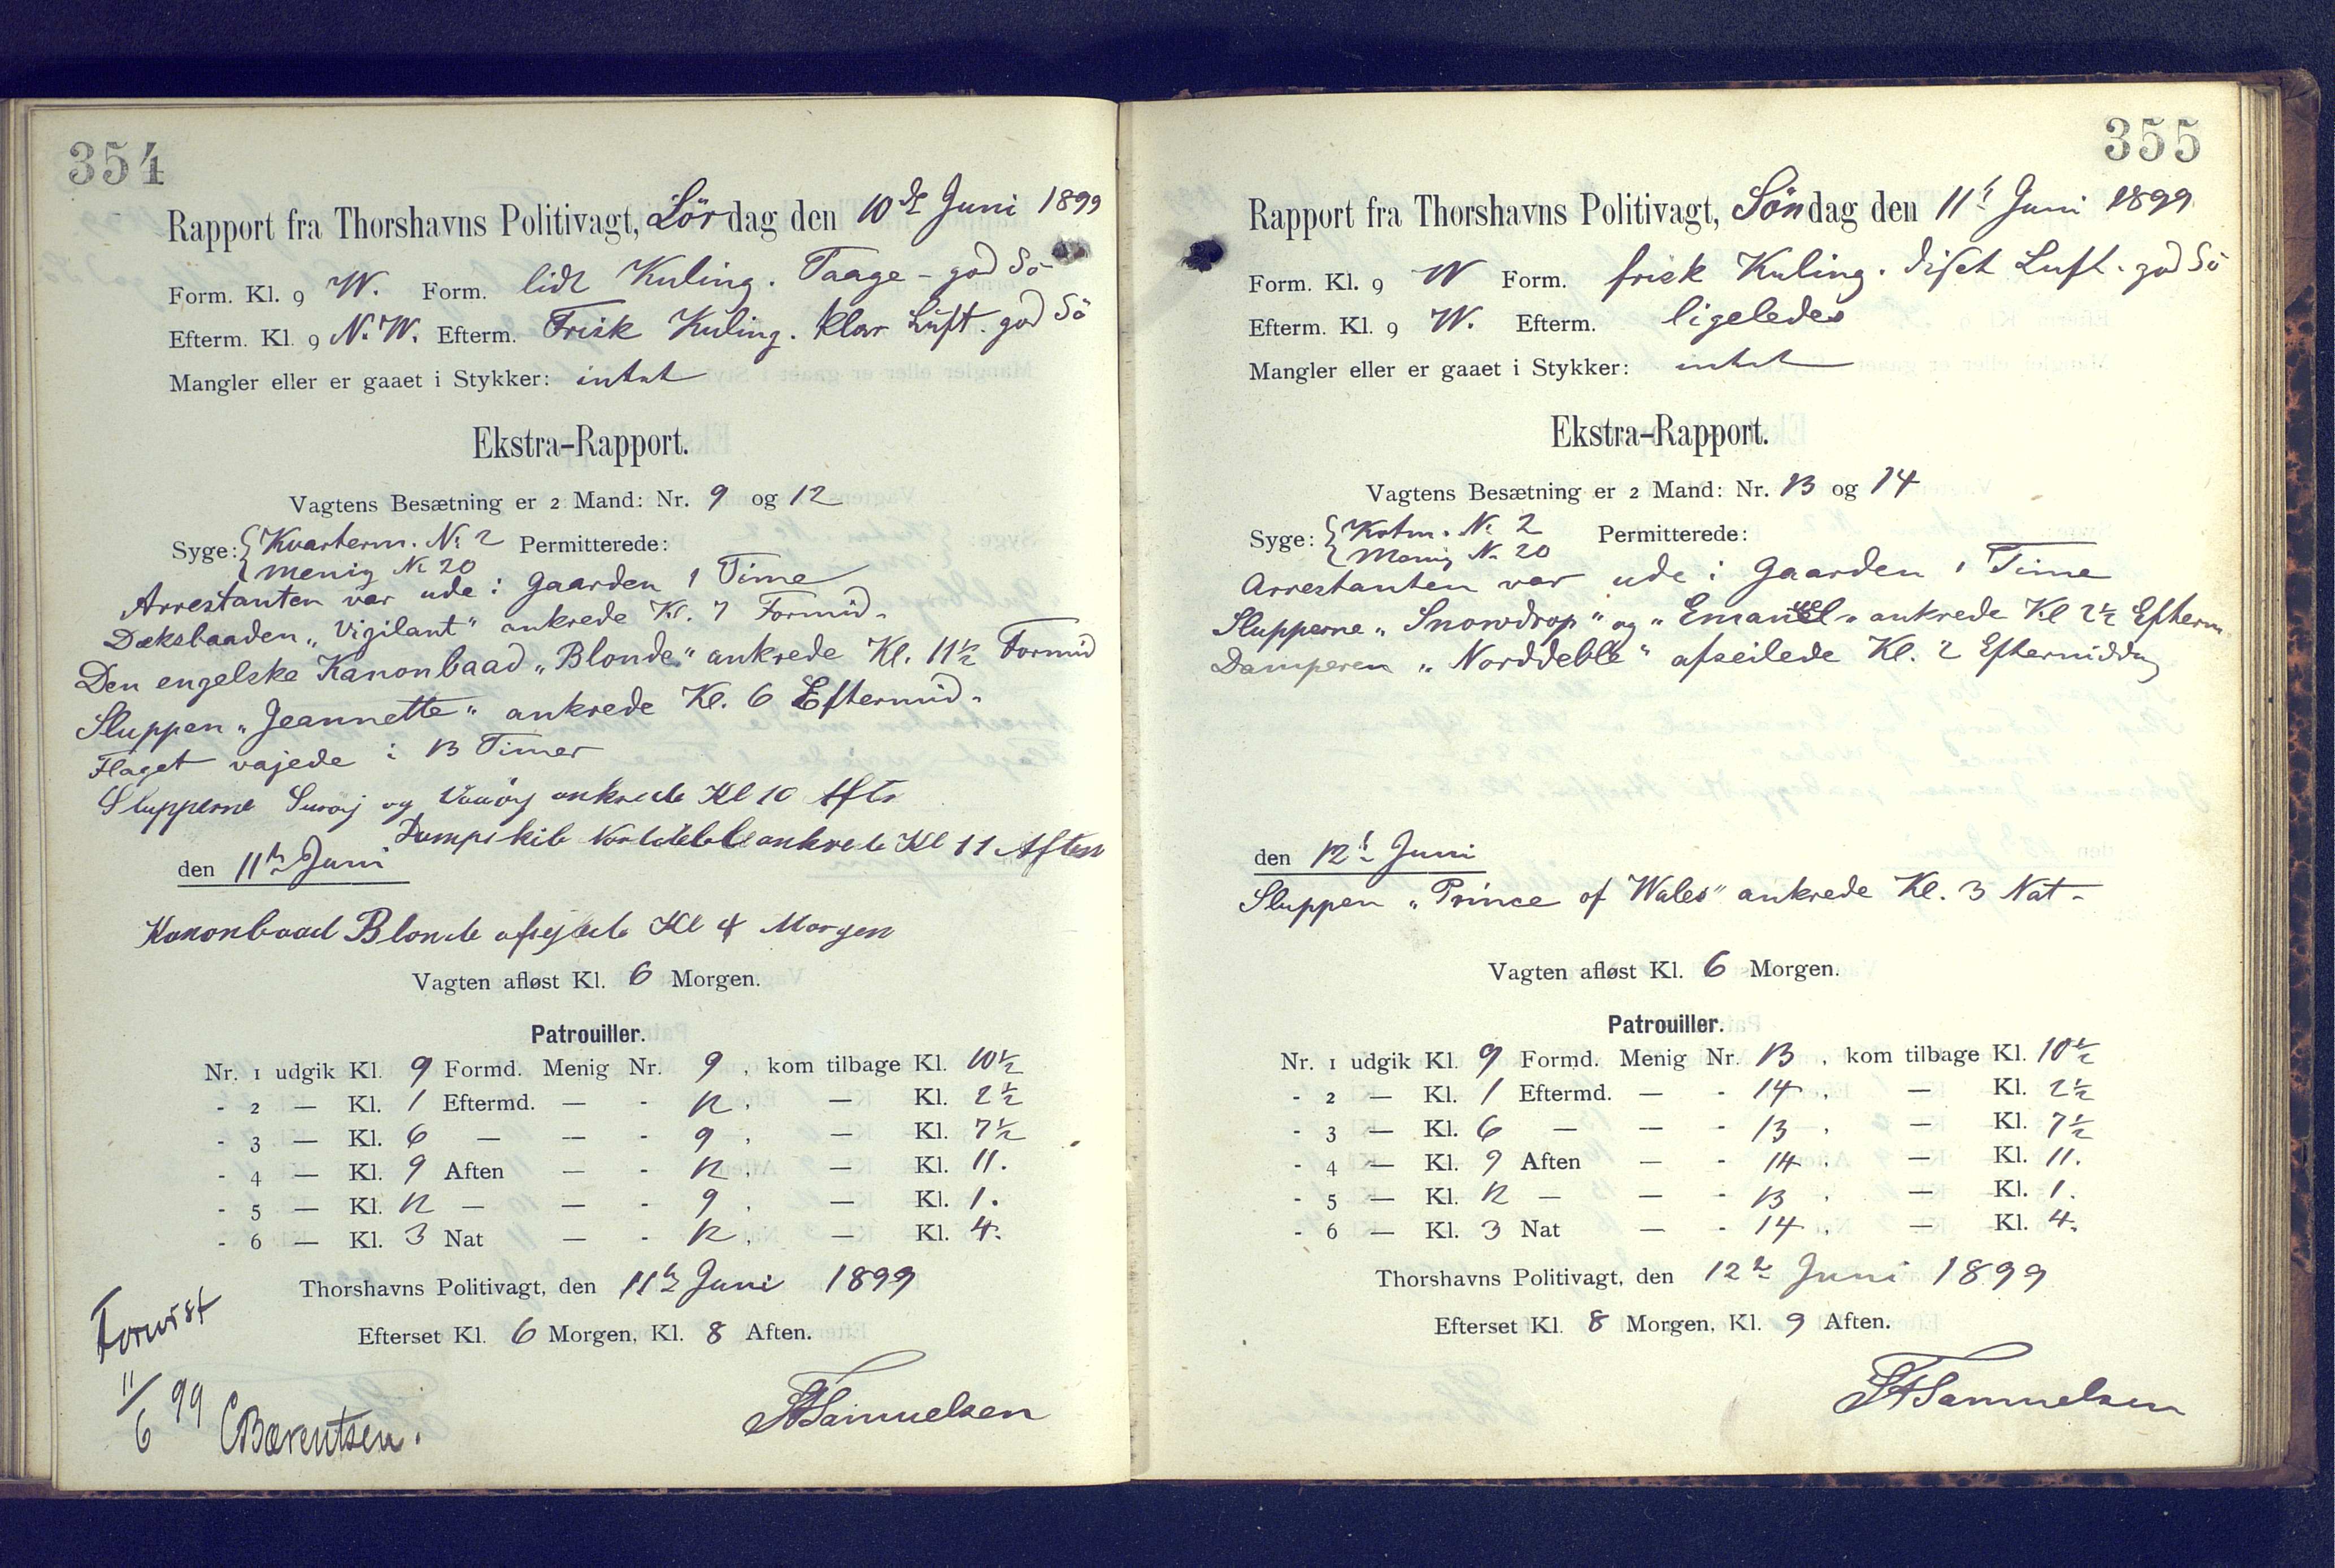 354
Rapport fra Thorshavns Politivagt, Lördag den 10de Juni 1899
Form. Kl. 9 W. Form. lidt Kuling. Taage - god Sö
Efterm. Kl. 9 N.W. Efterm. Frisk Kuling. klar Luft. god Sö
Mangler eller er gaaet i Stykker: intet
Ekstra-Rapport.
Vagtens Besætning er 2 Mand: Nr. 9 og 12
Syge: { Kvarterm. Nr 2 Permitterede:
Menig Nr 20
Arrestanten var ude i Gaarden 1 Time
Dæksbaaden „Vigilant" ankrede Kl. 7 Formid.
Den engelske Kanonbaad „Blonde" ankrede Kl. 11½ Formid
Sluppen „Jeannette" ankrede Kl. 6 Eftermid.
Flaget vajede i 13 Timer
Slupperne Suroy og ankrede Kl 10 Aftn
Dampskib Norddeble ankrede Kl 11 Aften
den 11te Juni
Kanonbaad Blonde afsejlede Kl 4 Morgen
Vagten afløst Kl. 6 Morgen.
Patrouiller.
Nr. 1 udgik Kl. 9 Formd. Menig Nr. 9, kom tilbage Kl. 10½
- 2 — Kl. 1 Eftermd. — - 12, — Kl. 2½
- 3 — Kl. 6 — — - 9, — Kl. 7½
- 4 — Kl. 9 Aften — - 12, — Kl. 11.
- 5 — Kl. 12 — — - 9, — Kl. 1.
- 6 — Kl. 3 Nat — - 12, — Kl. 4.
Thorshavns Politivagt, den 11te Juni 1899
Efterset Kl. 6 Morgen, Kl. 8 Aften.
Forevist
11/6 99 CBærentsen.
Samuelsen
355
Rapport fra Thorshavns Politivagt, Söndag den 11te Juni 1899
Form. Kl. 9 W Form. frisk Kuling. diset Luft. god Sö
Efterm. Kl. 9 W. Efterm. ligeledes
Mangler eller er gaaet i Stykker: intet
Ekstra-Rapport.
Vagtens Besætning er 2 Mand: Nr. 13 og 14
Syge: { Kvtm. Nr 2 Permitterede:
Menig Nr 20
Arrestanten var ude i Gaarden 1 Time
Slupperne „Snowdrop" og „Emanuel" ankrede Kl 2½ Efterm.
Damperen „Norddeble" afseilede Kl. 2 Eftermiddag
den 12te Juni
Sluppen „Prince of Wales" ankrede Kl. 3 Nat.
Vagten afløst Kl. 6 Morgen.
Patrouiller.
Nr. 1 udgik Kl. 9 Formd. Menig Nr. 13, kom tilbage Kl. 10½
- 2 — Kl. 1 Eftermd. — - 14, — Kl. 2½
- 3 — Kl. 6 — — - 13, — Kl. 7½
- 4 — Kl. 9 Aften — - 14, — Kl. 11.
- 5 — Kl. 12 — — - 13, — Kl. 1.
- 6 — Kl. 3 Nat — - 14, — Kl. 4.
Thorshavns Politivagt, den 12te Juni 1899
Efterset Kl. 8 Morgen, Kl. 9 Aften.
Samuelsen